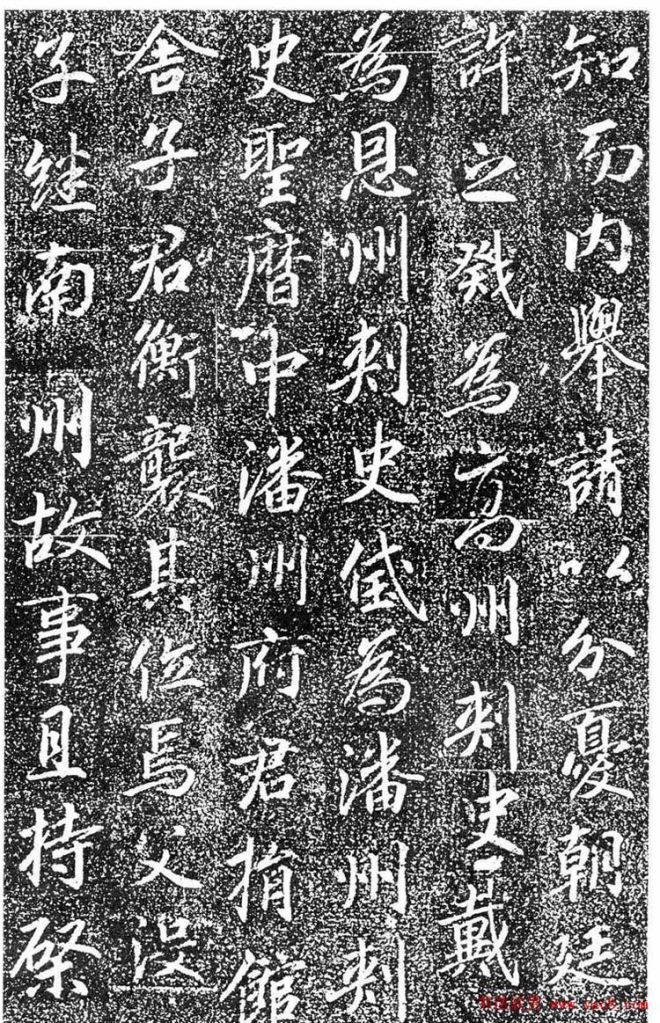 知而內舉請以分憂朝廷
許之戣為高州刺史戴
為恩州刺史㦸為潘州刺
史聖曆中潘州府君捐館
舍子君衡襲其位焉父沒
子繼南州故事且持棨